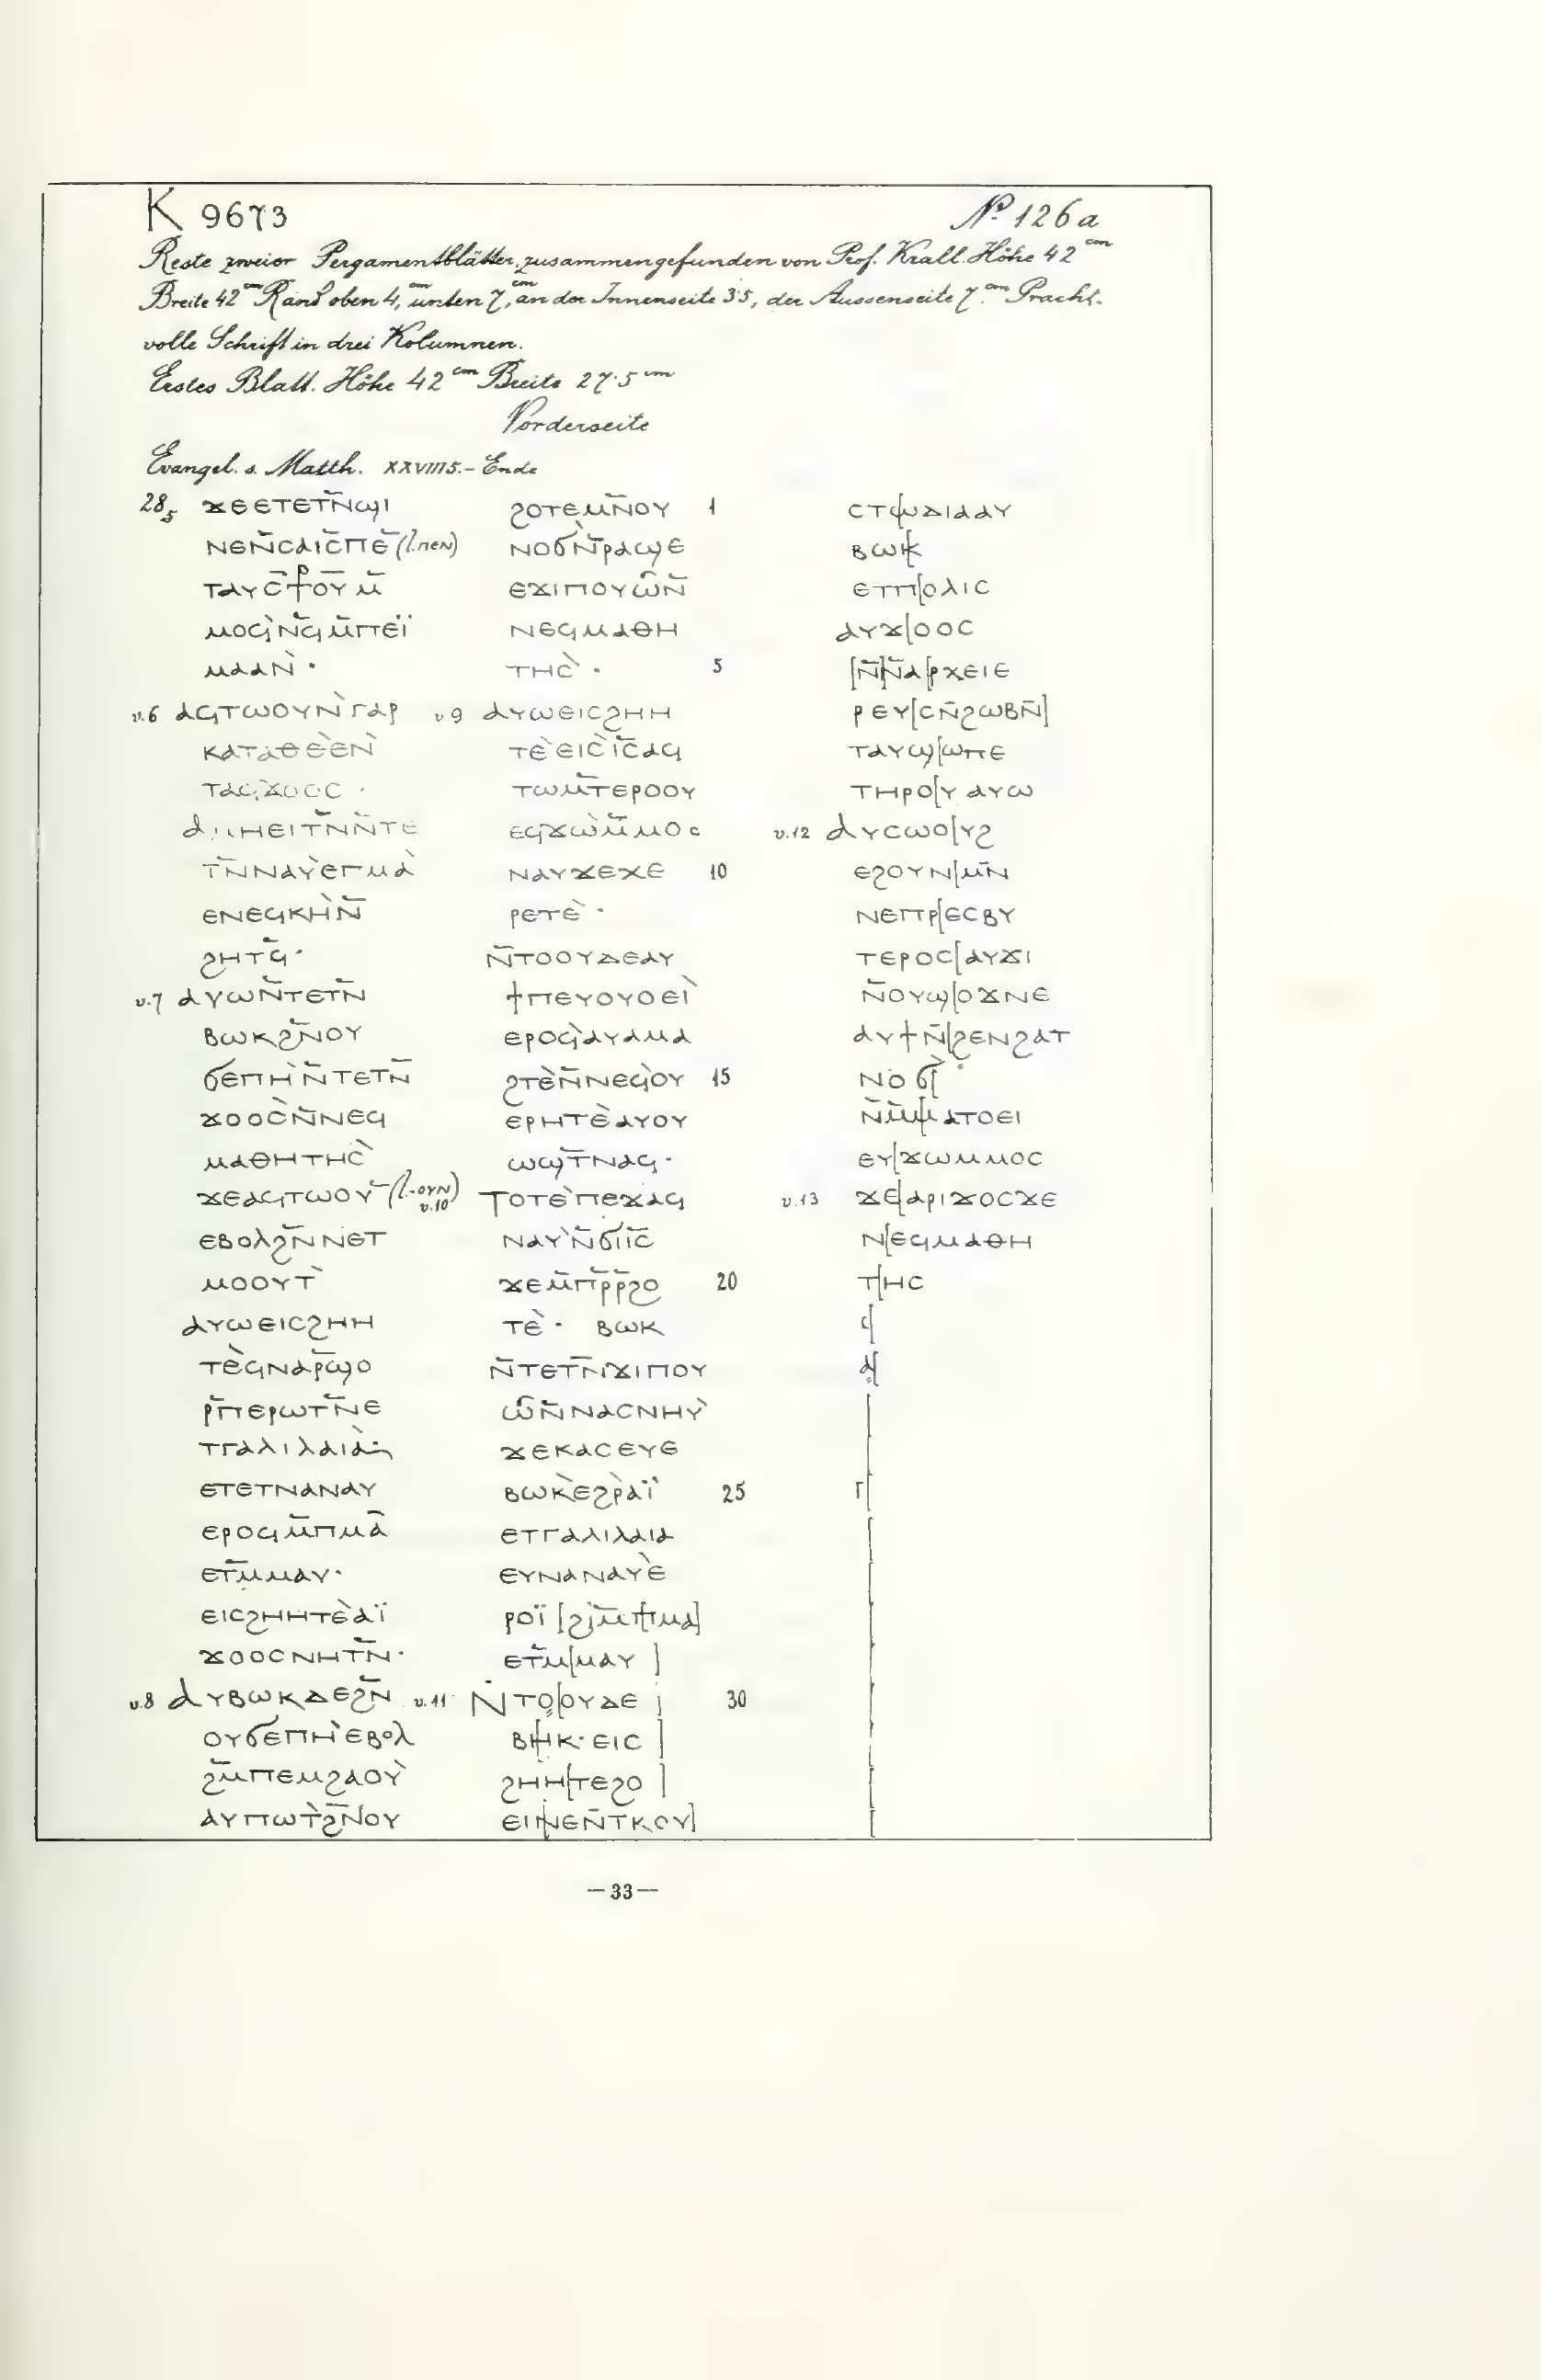 K 9673 № 126 a
Reste zweier Pergamentblätter, zusammengefunden von Prof. Krall. Höhe 42 cm
Breite 42 cm Rand oben 4, cm unten 7, cm an der Innenseite 3·5, der Aussenseite 7. cm Pracht-
volle Schrift in drei Kolumnen.
Erstes Blatt. Höhe 42 cm Breite 27·5 cm
Vorderseite
Evangel. s. Matth. XXVIII 5.- Ende
28,5 ϫⲉⲉⲧⲉⲧⲛ̄ϣⲓ
ⲛⲉⲛ̄ⲥⲁⲓ̄ⲥ̄ⲡⲉ̄ (l. ⲡⲉⲛ)
ⲧⲁⲩⲥ̄⳨ⲟⲩ̄ⲙ̄
ⲙⲟϥ̀ⲛ̄ϥⲙ̄ⲡⲉⲓ̈
ⲙⲁⲁⲛ̀ ·
v.6 ⲁϥⲧⲱⲟⲩⲛ̀ⲅⲁⲣ
ⲕⲁⲧⲁⲑⲉ̀ⲉⲛ̀
ⲧⲁϥϫⲟⲟⲥ ·
ⲁ..ⲏⲉⲓⲧⲛ̄ⲛ̄ⲧⲉ
ⲧⲛ̄ⲛⲁⲩ̀ⲉⲡⲙⲁ̀
ⲉⲛⲉϥⲕⲏ̀ⲛ̄
ϩⲏⲧϥ̄·
v.7 ⲁⲩⲱⲛ̄ⲧⲉⲧⲛ̄
ⲃⲱⲕϩⲛ̄ⲟⲩ
ϭⲉⲡⲏ̀ⲛ̄ⲧⲉⲧⲛ̄
ϫⲟⲟⲥ̀ⲛ̄ⲛⲉϥ
ⲙⲁⲑⲏⲧⲏⲥ̀
ϫⲉⲁϥⲧⲱⲟⲩ̄ (l. -ⲟⲩⲛ)
ⲉⲃⲟⲗϩⲛ̄ⲛⲉⲧ
ⲙⲟⲟⲩⲧ̀
ⲁⲩⲱⲉⲓⲥϩⲏⲏ
ⲧⲉ̀ϥⲛⲁⲣ̄ϣⲟ
ⲣ̄ⲡⲉⲣⲱⲧⲛ̄ⲉ
ⲧⲅⲁⲗⲓⲗⲁⲓⲁ̀·
ⲉⲧⲉⲧⲛⲁⲛⲁⲩ
ⲉⲣⲟϥⲙ̄ⲡⲙⲁ̂
ⲉⲧⲙ̄ⲙⲁⲩ·
ⲉⲓⲥϩⲏⲏⲧⲉ̀ⲁⲓ̈
ϫⲟⲟⲥⲛⲏⲧⲛ̄·
v.8 ⲁⲩⲃⲱⲕⲇⲉϩⲛ̄
ⲟⲩϭⲉⲡⲏ̀ⲉⲃⲟⲗ
ϩⲙ̄ⲡⲉⲙϩⲁⲟⲩ̀
ⲁⲩⲡⲱⲧ̀ϩⲛ̄ⲟⲩ
ϩⲟⲧⲉⲙⲛ̄ⲟⲩ 1
ⲛⲟϭⲛ̄ⲣⲁϣⲉ
ⲉϫⲓⲡⲟⲩⲱ̂ⲛ̄
ⲛⲉϥⲙⲁⲑⲏ
ⲧⲏⲥ̀ · 5
v 9 ⲁⲩⲱⲉⲓⲥϩⲏⲏ
ⲧⲉ̀ⲉⲓⲥ̀ⲓ̄ⲥ̄ⲁϥ
ⲧⲱⲙ̄ⲧⲉⲣⲟⲟⲩ
ⲉϥϫⲱ̀ⲙ̄ⲙⲟⲥ
ⲛⲁⲩϫⲉⲭⲉ 10
ⲣⲉⲧⲉ̀ ·
ⲛ̄ⲧⲟⲟⲩⲇⲉⲁⲩ
ϯⲡⲉⲩⲟⲩⲟⲉⲓ̀
ⲉⲣⲟϥ̀ⲁⲩⲁⲙⲁ
ϩⲧⲉ̀ⲛ̄ⲛⲉϥⲟⲩ 15
ⲉⲣⲏⲧⲉ̀ⲁⲩⲟⲩ
ⲱϣⲧ̄ⲛⲁϥ·
v.10 ⲧⲟⲧⲉ̀ⲡⲉϫⲁϥ
ⲛⲁⲩ̀ⲛ̄ϭⲓⲓ̄ⲥ̄
ϫⲉⲙ̄ⲡⲣ̄ⲣ̄ϩⲟ 20
ⲧⲉ̀· ⲃⲱⲕ
ⲛ̄ⲧⲉⲧⲛ̄ϫⲓⲡⲟⲩ
ⲱ̂ⲛ̄ⲛⲁⲥⲛⲏⲩ̀
ϫⲉⲕⲁⲥⲉⲩⲉ
ⲃⲱⲕ̀ⲉϩⲣ̀ⲁⲓ̈ 25
ⲉⲧⲅⲁⲗⲓⲗⲁⲓⲁ
ⲉⲩⲛⲁⲛⲁⲩ̀ⲉ
ⲣⲟⲓ̈ [ϩ]ⲙ̄[ⲡⲙⲁ]
ⲉⲧⲙ̄[ⲙⲁⲩ ]
v.11 ⲛ̀ⲧⲟ[ⲟⲩⲇⲉ ] 30
ⲃⲏ[ⲕ·ⲉⲓⲥ ]
ϩⲏⲏ[ⲧⲉϩⲟ ]
ⲉⲓⲛ[ⲉⲛ̄ⲧⲕⲟⲩ]
ⲥⲧⲱ[ⲇⲓⲁⲁⲩ
ⲃⲱⲕ[
ⲉⲧⲡ[ⲟⲗⲓⲥ
ⲁⲩϫ[ⲟⲟⲥ
[ⲛ̄]ⲛ̄ⲁ[ⲣⲭⲉⲓⲉ
ⲣⲉⲩ[ⲥⲛ̄ϩⲱⲃⲛ̄]
ⲧⲁⲩϣ[ⲱⲡⲉ
ⲧⲏⲣⲟ[ⲩ ⲁⲩⲱ
v.12 ⲁⲩⲥⲱⲟ[ⲩϩ
ⲉϩⲟⲩⲛ[ⲙⲛ̄
ⲛⲉⲡⲣ[ⲉⲥⲃⲩ
ⲧⲉⲣⲟⲥ[ⲁⲩϫⲓ
ⲛ̄ⲟⲩϣ[ⲟϫⲛⲉ
ⲁⲩϯⲛ̄[ϩⲉⲛϩⲁⲧ
ⲛⲟϭ[
ⲛ̄ⲙ̄ⲙ[ⲁⲧⲟⲉⲓ
ⲉⲩ[ϫⲱⲙⲙⲟⲥ
v.13 ϫⲉ[ⲁⲣⲓϫⲟⲥϫⲉ
ⲛ[ⲉϥⲙⲁⲑⲏ
ⲧ[ⲏⲥ
ⲥ[
ⲁ[
ⲅ[
—33—